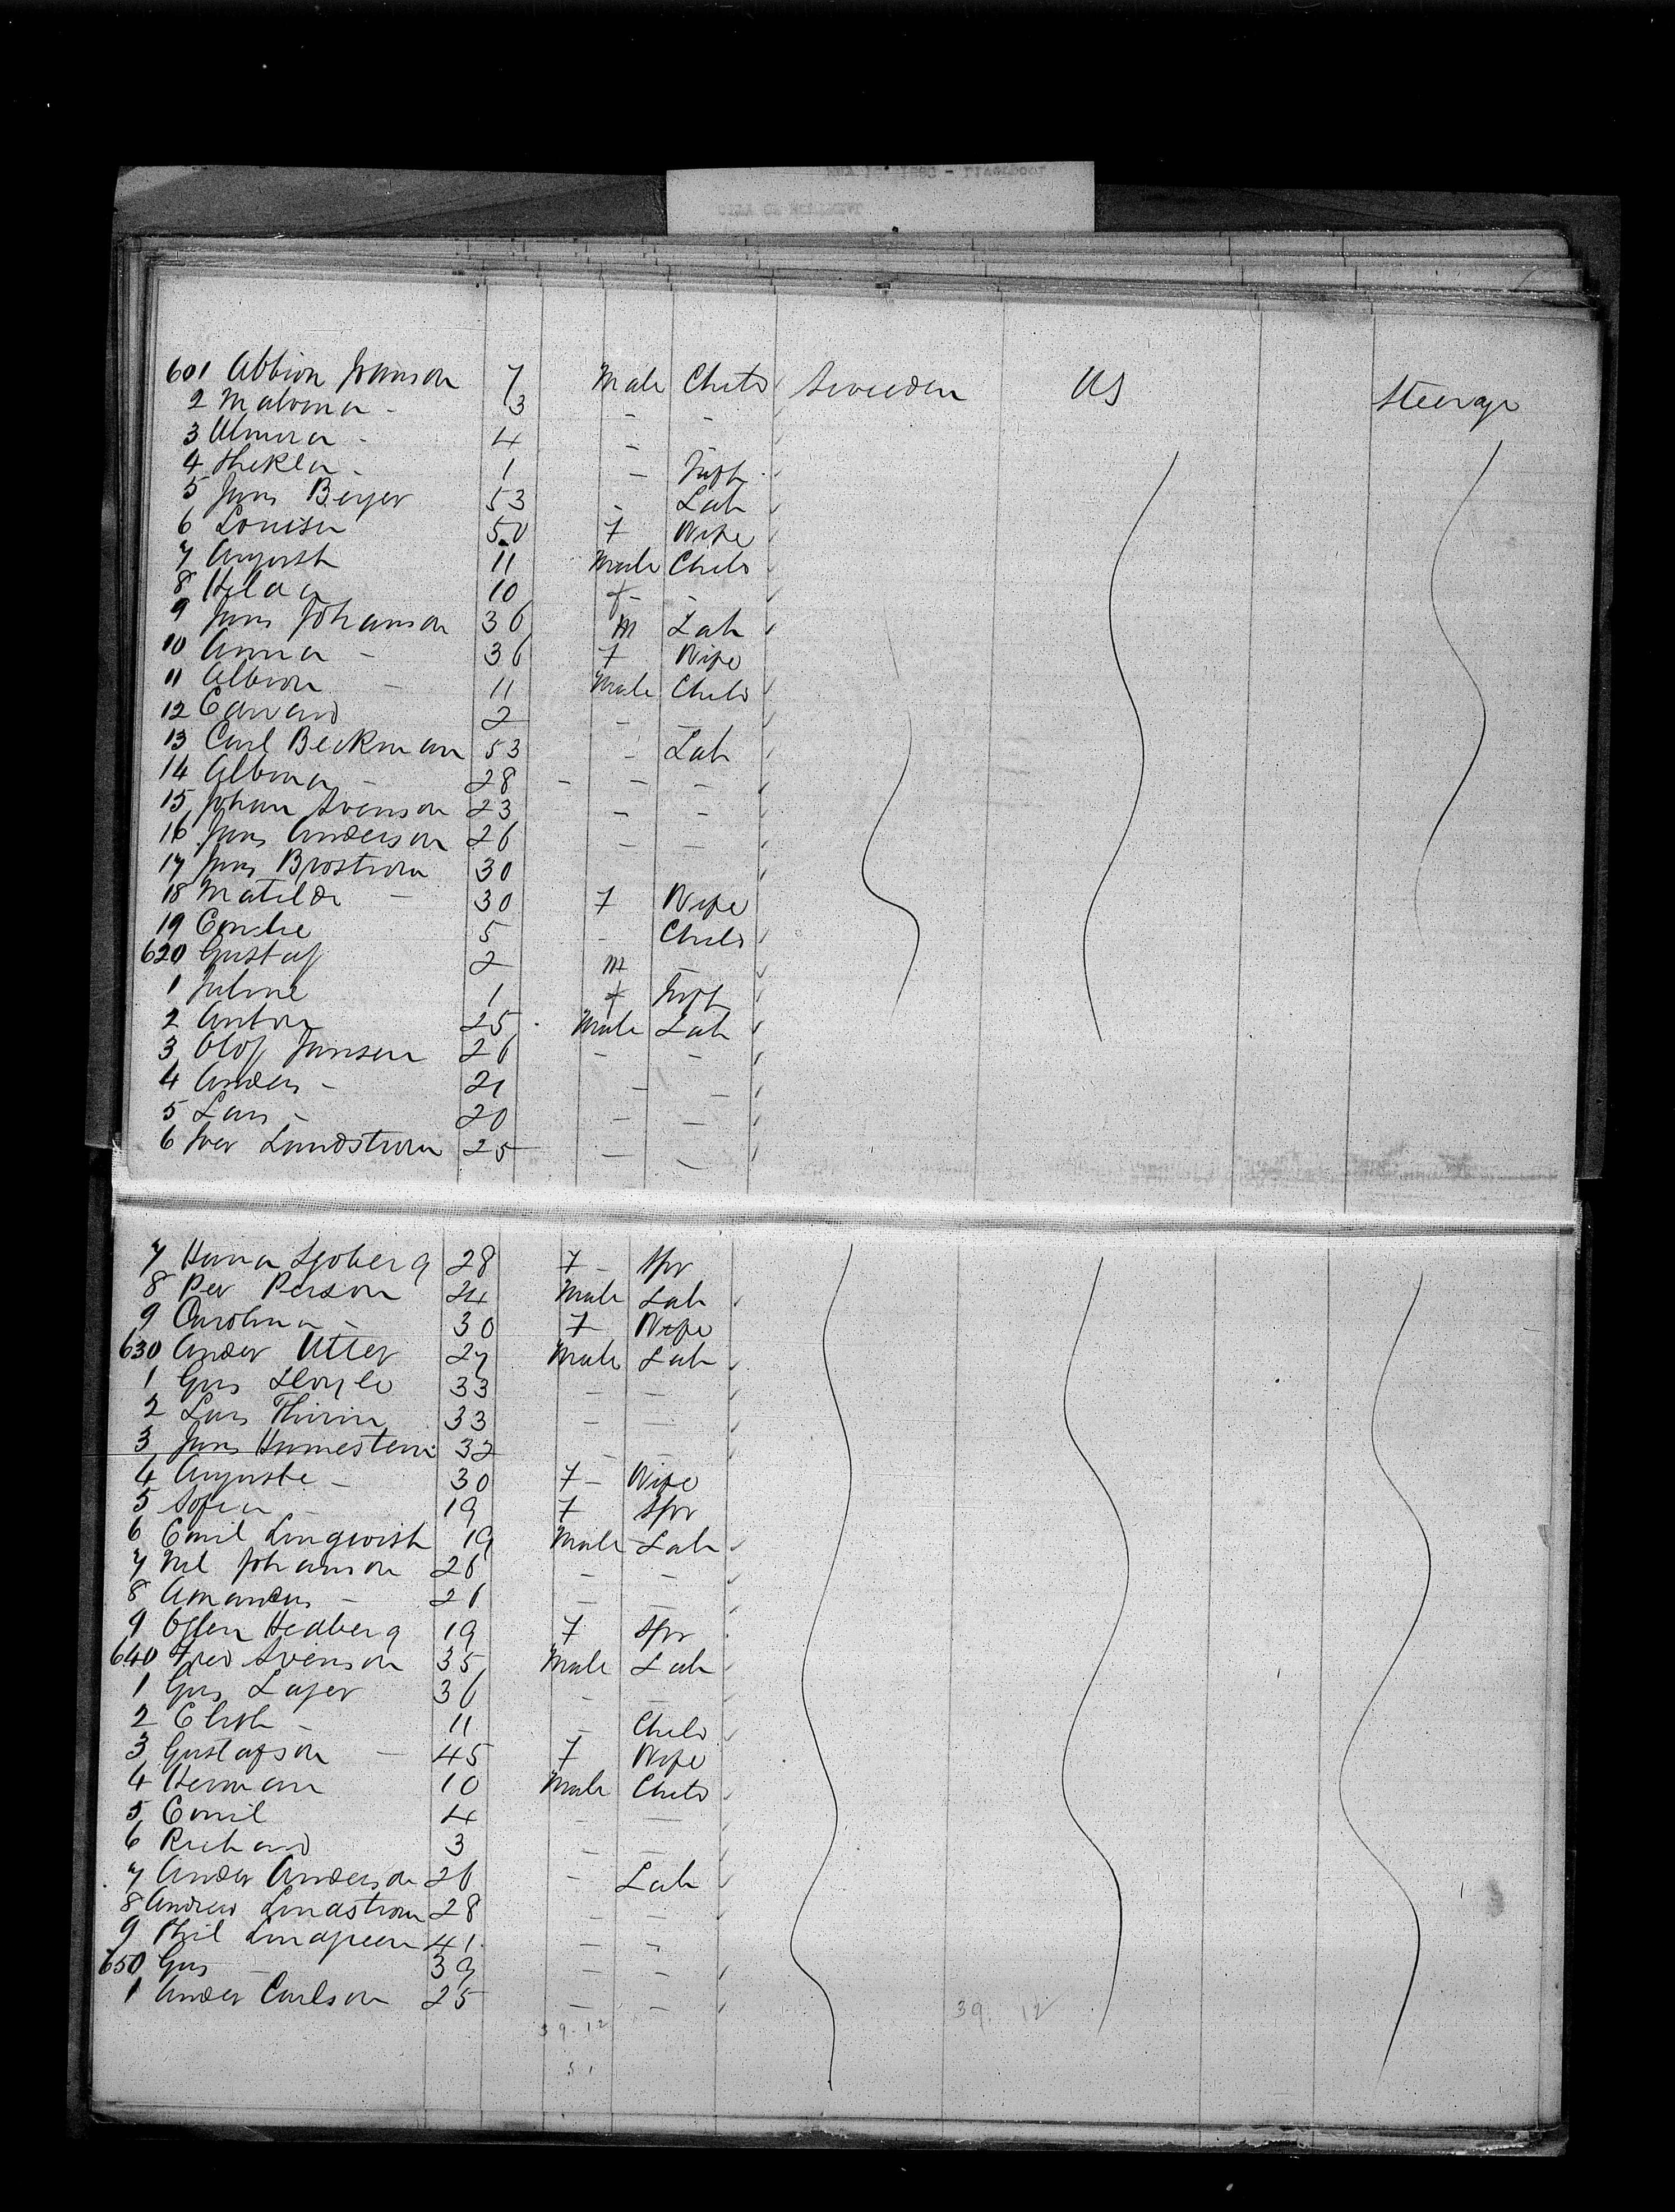 601 Albion Johnson 7 Male Child Sweden US Steerage
2 Malvina - 3 - -
3 Almira - 4 - -
4 Thekla - 1 - Inft
5 Jans Beyer 53 - Lab
6 Louisa 50 F Wife
7 August 11 Male Child
8 Hilda 10 f - -
9 Jans Johanson 36 M Lab
10 Anna - 36 F Wife
11 Albion - 11 Male Child
12 Edward 2 - -
13 Carl Beckman 53 - Lab
14 Albina - 28 - - -
15 Johan Svenson 23 - -
16 Jans Anderson 26 - -
17 Jans Brostrom 30
18 Matilda - 30 F Wife
19 Emilie 5 - Child
620 Gustaf 2 M -
1 Juline 1 f Inft
2 Anton 25 Male Lab
3 Olof Jansen 26 - -
4 Anders - 21 - -
5 Lars - 20 - -
6 Iver Lundstrom 25 - -
7 Hanna Sjoberg 28 F - Spr
8 Per Person 24 Male Lab
9 Carolina - 30 F Wife
630 Ander Utter 27 Male Lab
1 Gus 33 - -
2 Lars 33 - -
3 Jans 32 - -
4 Auguste - 30 F - Wife
5 Sofia - 19 F Spr
6 Emil Linqwist 19 Male Lab
7 Nel Johanson 26 - -
8 Amandus - 26 - -
9 Hedberg 19 F Spr
640 Fred Svenson 35 Male Lab
1 Gus Lager 36 - -
2 - 11 - Child
3 Gustafson - 45 F Wife
4 Herman 10 Male Child
5 Emil 4 - -
6 Richard 3 - -
7 Ander Anderson 26 - Lab
8 Andrew Lindstrom 28 - -
9 Phil Lindgreen 41 - -
650 Gus - 39 - -
1 Ander Carlson 25 - -
39. 12 39. 12
51